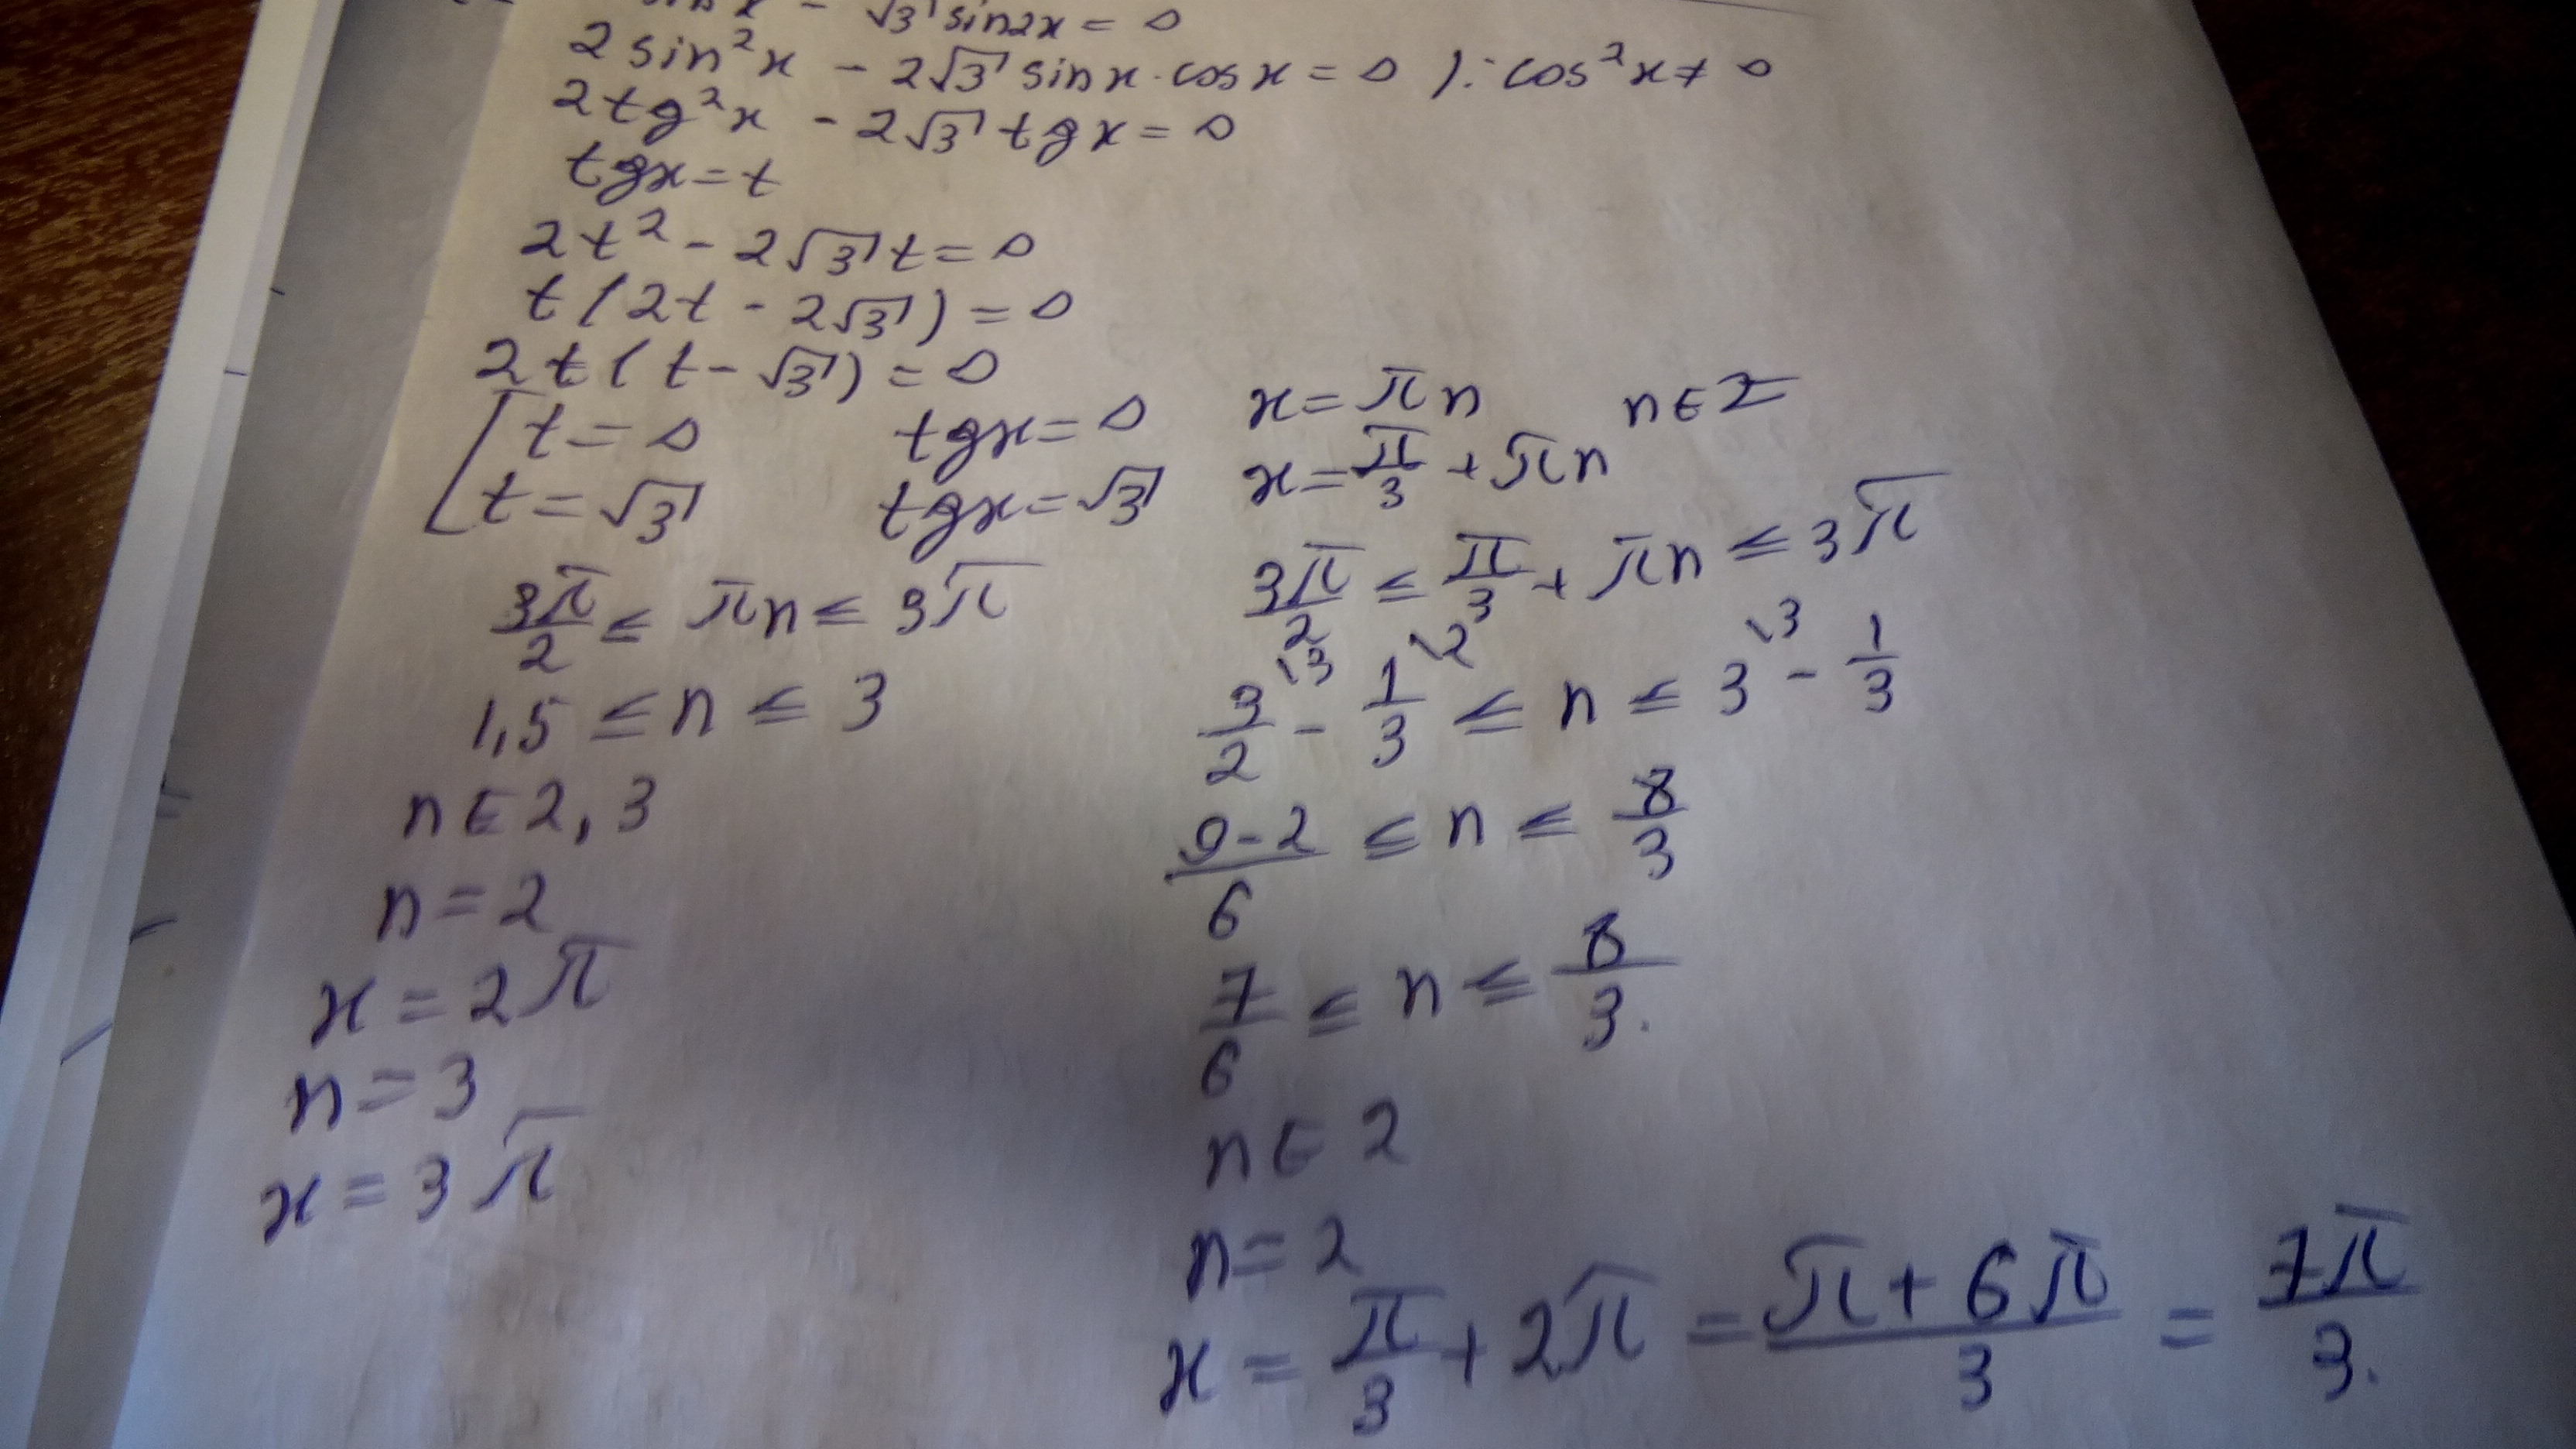 - √3 sin2x = 0
2 sin²x - 2√3 sinx · cosx = 0 ) : cos²x ≠ 0
2tg²x - 2√3 tgx = 0
tgx = t
2t² - 2√3 t = 0
t(2t - 2√3) = 0
2t(t - √3) = 0
[ t = 0 tgx = 0 x = πn n ∈ Z
t = √3 tgx = √3 x = π/3 + πn
3π/2 ≤ πn ≤ 3π
1,5 ≤ n ≤ 3
n ∈ 2, 3
n = 2
x = 2π
n = 3
x = 3π
3π/2 ≤ π/3 + πn ≤ 3π
3/2 \3 - 1/3 \2 ≤ n ≤ 3 \3 - 1/3
9-2/6 ≤ n ≤ 8/3
7/6 ≤ n ≤ 8/3.
n ∈ 2
n = 2
x = π/3 + 2π = π + 6π/3 = 7π/3.